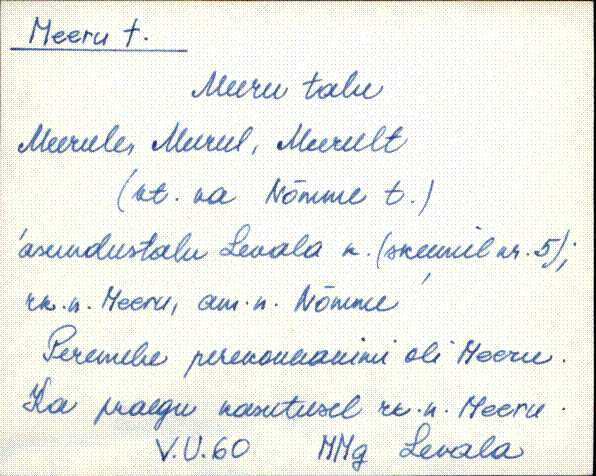 Meeru t.
Meeru talu
Meerule, Meerul, Meerult
(vt. ka Nõmme t.)
asundustalu Levala k. (skeemil nr. 5);
rk.n. Meeru, am.n. Nõmme
Peremehe perekonnanimi oli Meeru.
Ka praegu kasutusel rk.n. Meeru.
V.U.60 MMg Levala